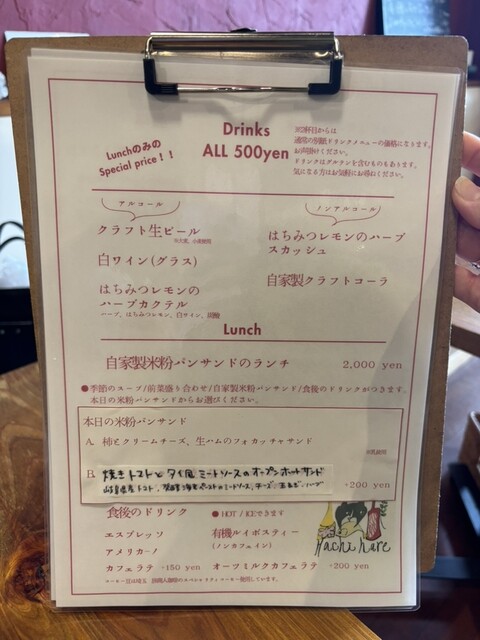 Drinks
ALL 500yen
Lunchのみの
Special price！！
※2杯目からは
通常の別紙ドリンクメニューの価格になります。
お声掛けください。
ドリンクはグルテンを含むものもあります。
気になる方はお気軽にお尋ねください。
アルコール
クラフト生ビール
白ワイン(グラス)
はちみつレモンの
ハーブカクテル
ハーブ、はちみつレモン、白ワイン、
ノンアルコール
はちみつレモンのハーブ
スカッシュ
自家製クラフトコーラ
Lunch
自家製米粉パンサンドのランチ 2,000 yen
●季節のスープ/前菜盛り合わせ/自家製米粉パンサンド/食後のドリンクがつきます。
本日の米粉パンサンドからお選びください。
本日の米粉パンサンド
A. 柿とクリームチーズ、生ハムのフォカッチャサンド
※乳使用
B. 焼きトマトとタイ風ミートソースのオープンホットサンド
岐阜県産トマト、ミートソース、チーズ、玉ねぎ、ハーブ
+200 yen
食後のドリンク ●HOT / ICEできます
エスプレッソ
アメリカーノ
カフェラテ +150 yen
有機ルイボスティー
(ノンカフェイン)
オーツミルクカフェラテ +200 yen
Hachi hare